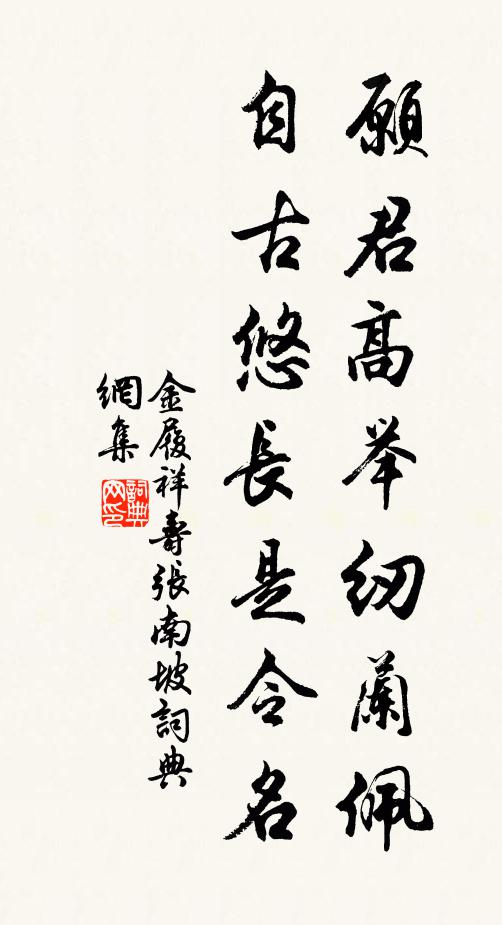 願君高举纫蘭佩
自古悠長是令名
金履祥壽張南坡詞典
網集
詞典网印